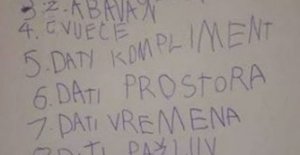 3. Z. ABAVAN
4. CVIJEĆE
5. DATY KOMPLIMENT
6. DATI PROSTORA
7. DATI VREMENA
DATI